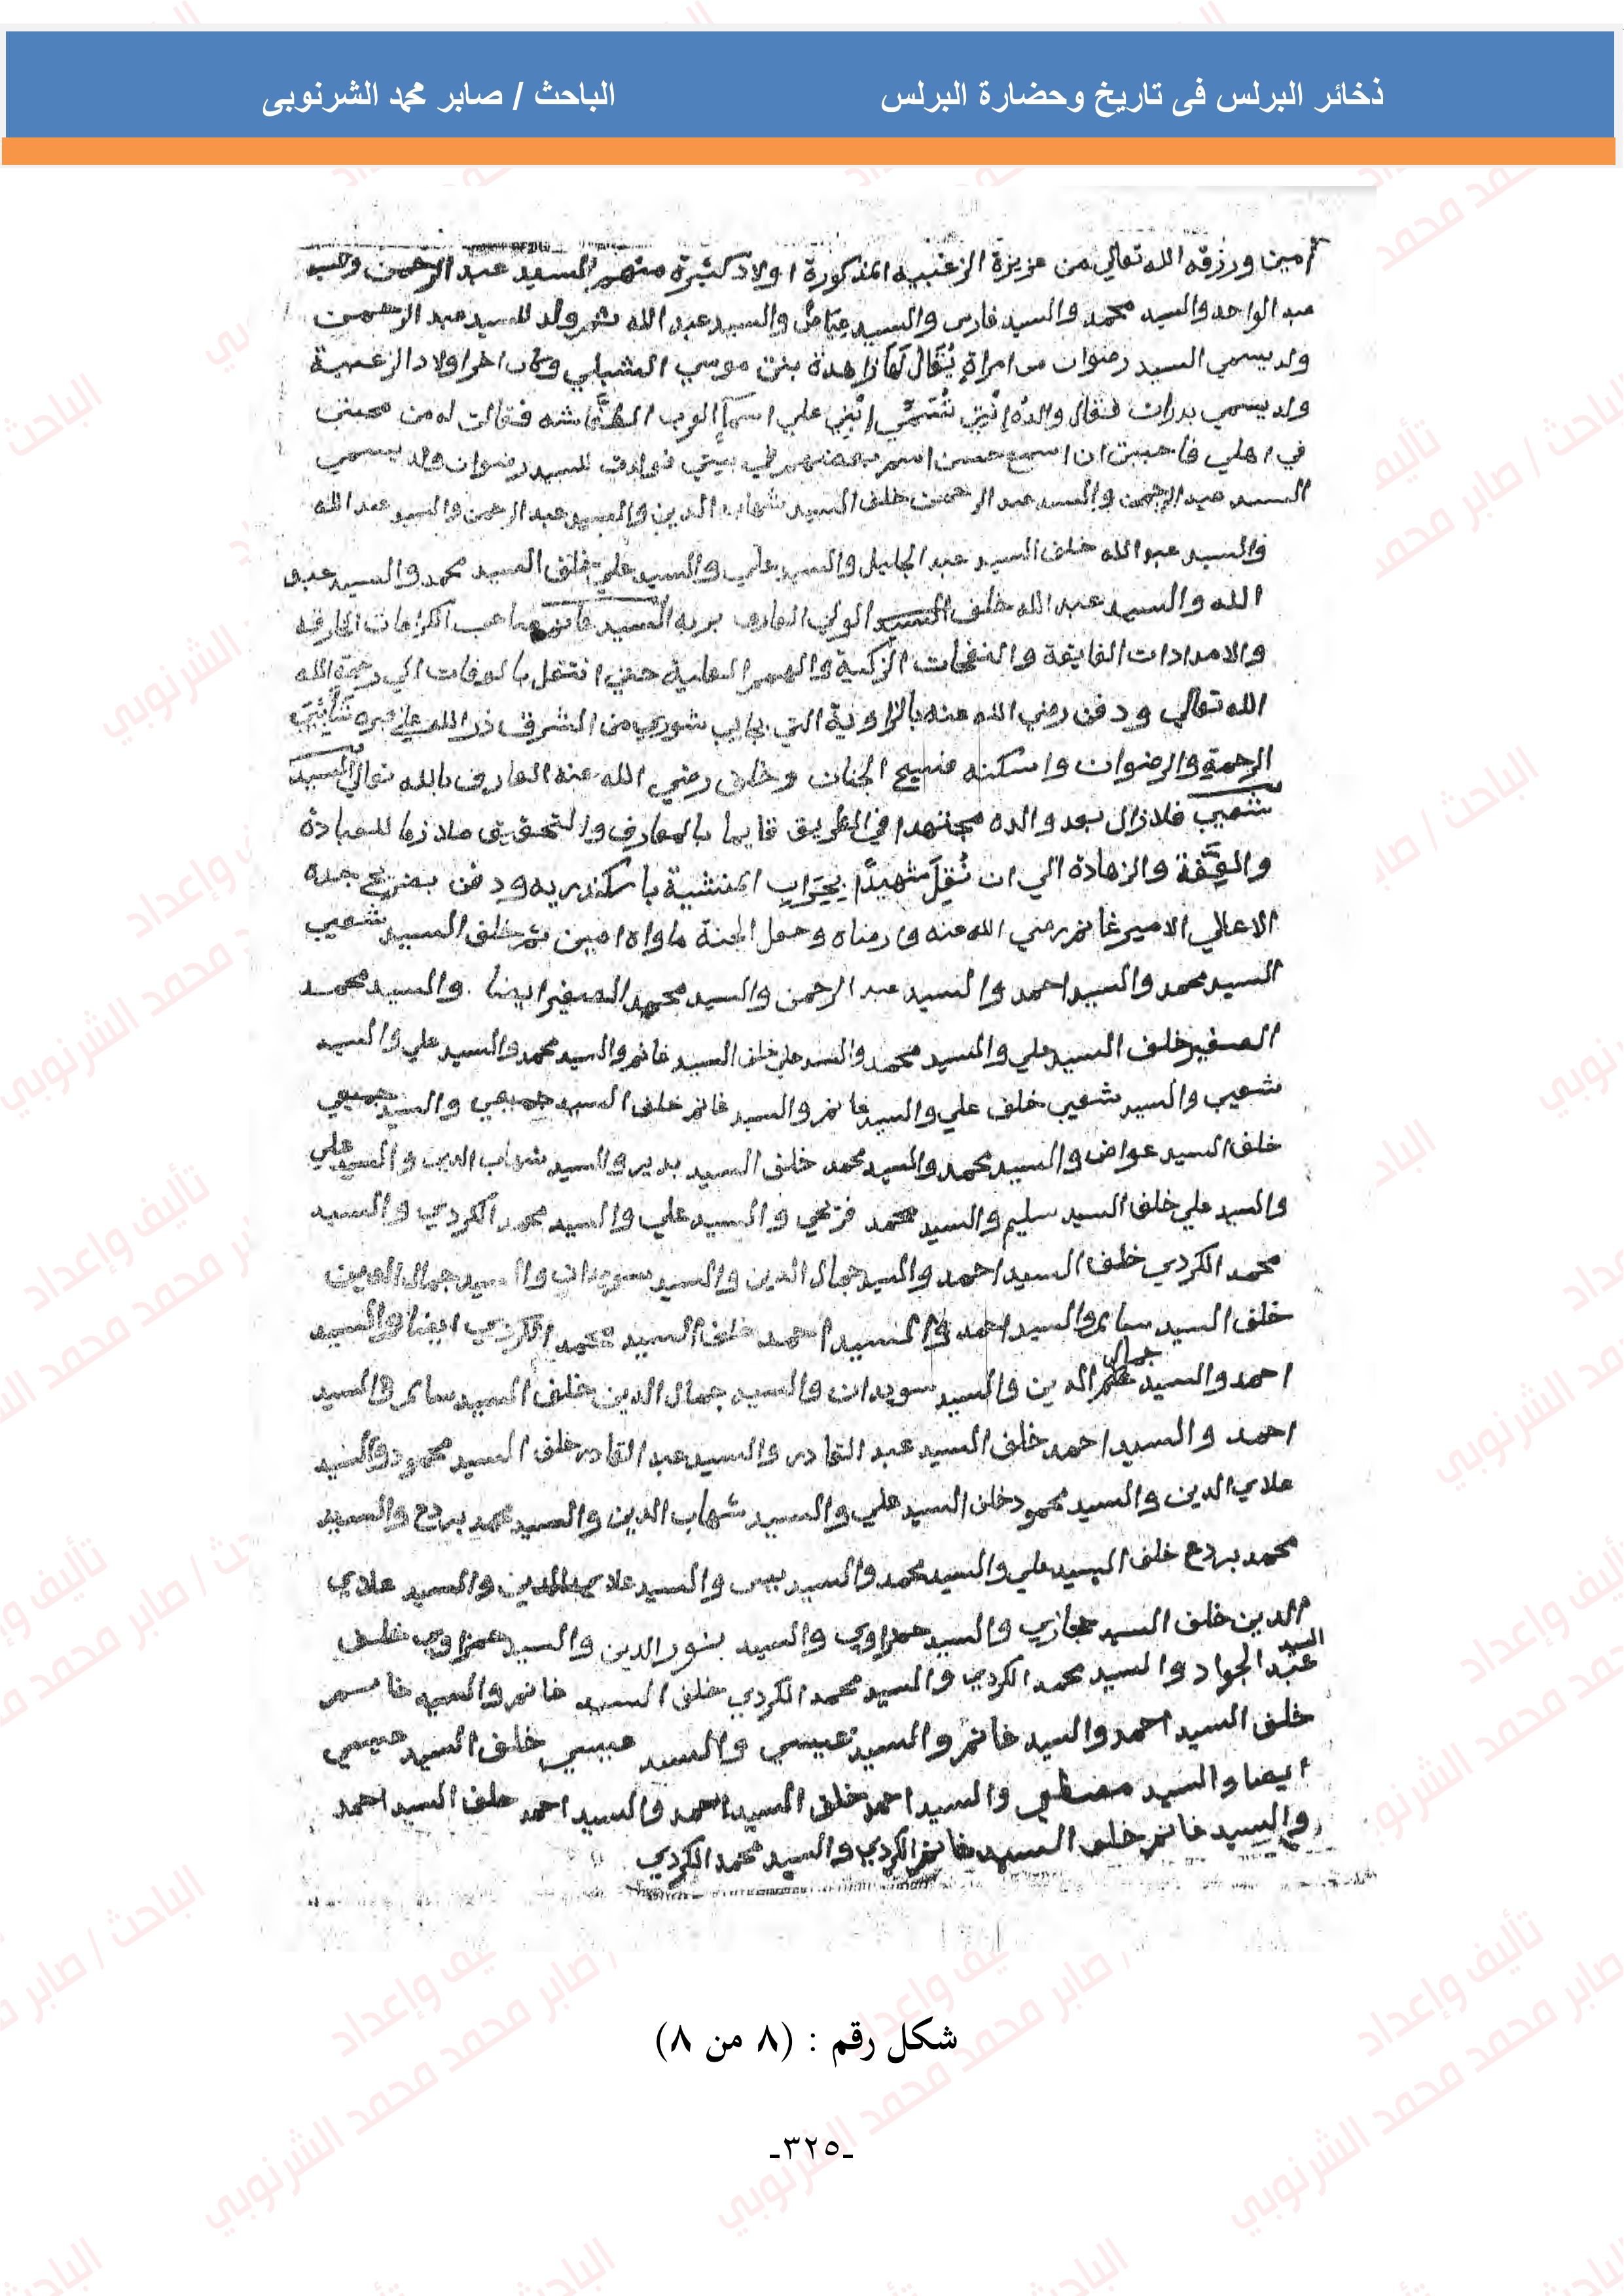 ذخائر البرلس فى تاريخ وحضارة البرلس
الباحث / صابر محمد الشرنوبى
امين ورزقه الله تعالي من عزيزة الزغبيه المذكورة اولاد كثيرة منهم السيد عبد الرحمن
عبد الواحد والسيد محمد والسيد فارس والسيد عياض والسيد عبد الله ثم ولد للسيد عبد الرحمن
ولد يسمي السيد رضوان من امراة يُقَال لَهَا زاهدة بنت موسي الشبلي وكان اخر اولاد الزغبية
ولد يسمي بدران فقال والدُه علي اسمآ العرب فقالت له من محبتي
في اهلي فاحببت ان اسمع حسن اسم بعضهم في بيتي فولدت للسيد رضوان ولد يسمي
السيد عبد الرحمن والسيد عبد الرحمن خلف السيد شهاب الدين والسيد عبد الرحمن والسيد عبد الله
والسيد عبد الله خلف السيد عبد الجليل والسيد علي والسيد علي خلف السيد محمد والسيد عبد
الله والسيد عبد الله خلف السيد الولي العارف بربه السيد غانم صاحب الكرامات الخارقه
والامدادات الفايقة والنفحات الزكية والهمم العلية حتي انتقل بالوفات الي رحمة الله
الله تعالي ودفن رضي الله عنه بالزاوية التي بجانب شوري من الشرق
الرحمة والرضوان واسكنه فسيح الجنان وخلف رضي الله عنه العارف بالله تعالي السيد
شعيب فلا زال بعد والده مجتهدا في الطريق قايما بالمعارف والتحقيق ملازما للعبادة
والعِفَّة والزهادة الي ان نُقِلَ شهيدًا المنشية باسكندريه ودفن بضريح جده
الاعالي الامير غانم رضي الله عنه وارضاه وجعل الجنة ماواه امين ثم خلف السيد شعيب
السيد محمد والسيد احمد والسيد عبد الرحمن والسيد محمد الصغير ايضا . والسيد محمد
الصغير خلف السيد علي والسيد محمد والسيد علي خلف السيد غانم والسيد محمد والسيد علي والسيد
شعيب والسيد شعيب خلف علي والسيد غانم والسيد غانم خلف السيد جميعي والسيد جميعي
خلف السيد عواض والسيد محمد والسيد محمد خلف السيد بدير والسيد شهاب الدين والسيد علي
والسيد علي خلف السيد سليم والسيد محمد والسيد علي والسيد محمد الكردي والسيد
محمد الكردي خلف السيد احمد والسيد جمال الدين والسيد سويدان والسيد جمال الدين
خلف السيد سالم والسيد احمد والسيد احمد خلف السيد محمد الكردي ايضا والسيد
احمد والسيد جمال الدين والسيد سويدان والسيد جمال الدين خلف السيد سالم والسيد
احمد والسيد احمد خلف السيد عبد القادر والسيد عبد القادر خلف السيد محمود والسيد
علاي الدين والسيد محمود خلف السيد علي والسيد شهاب الدين والسيد محمد بردع والسيد
محمد بردع خلف السيد علي والسيد محمد والسيد يس والسيد علاي الدين والسيد علاي
الدين خلف السيد حجازي والسيد حمزاوي والسيد بنور الدين والسيد حمزاوي خلف
السيد عبد الجواد والسيد محمد الكردي والسيد محمد الكردي خلف السيد غانم والسيد غانم
خلف السيد احمد والسيد غانم والسيد عيسي والسيد عيسي خلف السيد عيسي
ايضا والسيد مصطفي والسيد احمد خلف السيد احمد والسيد احمد خلف السيد احمد
والسيد غانم خلف السيد غانم الكردي والسيد محمد الكردي
شكل رقم : (٨ من ٨)
-٣٢٥-